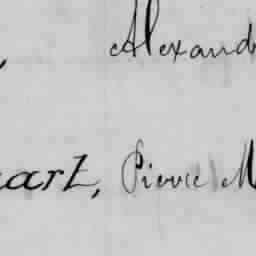 , Alexand
art, Pierre M